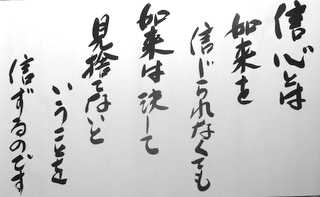 信心とは
如来を
信じられなくても
如来は決して
見捨てないと
いうことを
信ずるのです